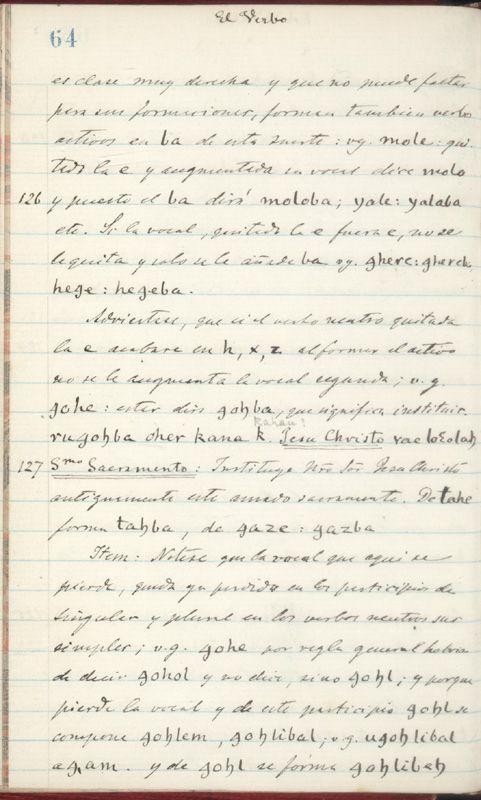 El Verbo
64
es clase muy derecha y que no puede faltar
para sus formaciones, forman tambien verbos
activos en ba de esta suerte: vg. mole: qui
tada la e y augmentada su vocal dice molo
126 y puesto el ba dirá moloba; yale: yalaba
etc. Si la vocal, quitada la e fuera e, no se
le quita y solo se le añade ba vg. ghere: ghereba
hege: hegeba.
Adviertase, que si el verbo neutro quitada
la e acabare en h, x, z al formar el activo
no se le augmenta la vocal segunda; v.g.
gohe: estar dirá gohba, que significa instituir.
kahau?
rugohba oher kana k. Jesu Christo rae loEolah
127 Smo Sacramento: Instituyo Nro Sor Jesu Christo
antiguamente este amado sacramento. De tahe
forma tahba, de gaze: gazba
Item: Notese que la vocal que aqui se
pierde, queda ya perdida en los participios de
singular y plural en los verbos neutros sus
simples; v.g. gohe por regla general habria
de decir gohol y no dice, sino gohl; y porque
pierde la vocal y de este participio gohl se
compone gohlem, gohlibal; v.g. ugohlibal
agam. y de gohl se forma gohlibeh